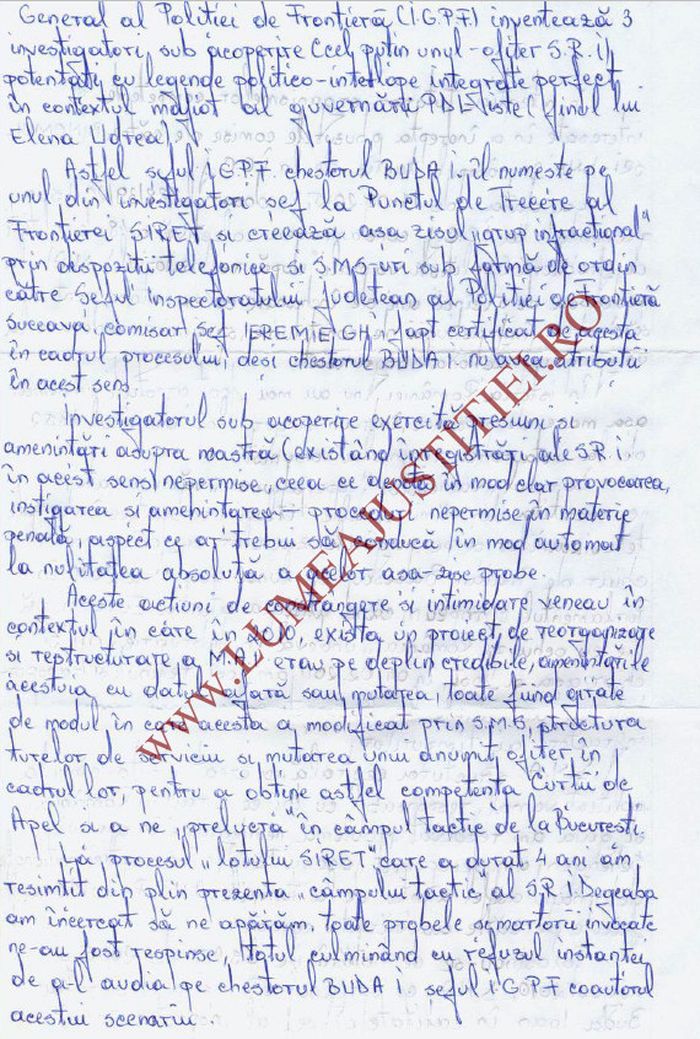 General al Politiei de Frontieră (I.G.P.F.) inventează 3
investigatori sub acoperire (cel putin unul - ofiter S.R.I),
potentati cu legende politico-interlope integrate perfect
în contextul mafiot al guvernării PDL-iste (finul lui
Elena Udrea)
Astfel seful I.G.P.F. chestorul BUDA I. îl numeste pe
unul din investigatori sef la Punctul de Trecere al
Frontierei SIRET si creează asa zisul „grup infractional"
prin dispozitii telefonice si S.M.S-uri sub formă de ordin
către Seful Inspectoratului Judetean al Politiei de Frontieră
Suceava, comisar sef IEREMIE GH. fapt certificat de acesta
în cadrul procesului, desi chestorul BUDA I. nu avea atributii
în acest sens.
Investigatorul sub acoperire exercită presiuni si
amenintări asupra noastră (existând înregistrări ale S.R.I.
în acest sens) nepermise, ceea ce denotă în mod clar provocarea,
instigarea si amenintarea - proceduri nepermise în materie
penală, aspect ce ar trebui să conducă în mod automat
la nulitatea absolută a acelor asa-zise probe.
Aceste actiuni de constrangere si intimidare veneau în
contextul în care în 2010, exista un proiect de reorganizare
si restructurare a M.A.I. erau pe deplin credibile, amenintările
acestuia cu datul afară sau mutarea, toate fiind girate
de modul în care acesta a modificat prin S.M.S. structura
turelor de serviciu si mutarea unui anumit ofiter în
cadrul lor, pentru a obtine astfel competenta Curtii de
Apel si a ne „prelucra" în câmpul tactic de la Bucuresti.
La procesul „lotului SIRET" care a durat 4 ani am
resimtit din plin prezenta „câmpului tactic" al S.R.I. Degeaba
am încercat să ne apărăm, toate probele si martorii invocate
ne-au fost respinse, totul culminând cu refuzul instantei
de a-l audia pe chestorul BUDA I. seful I.G.P.F coautorul
acestui scenariu.
www.LUMEAJUSTITIEI.RO